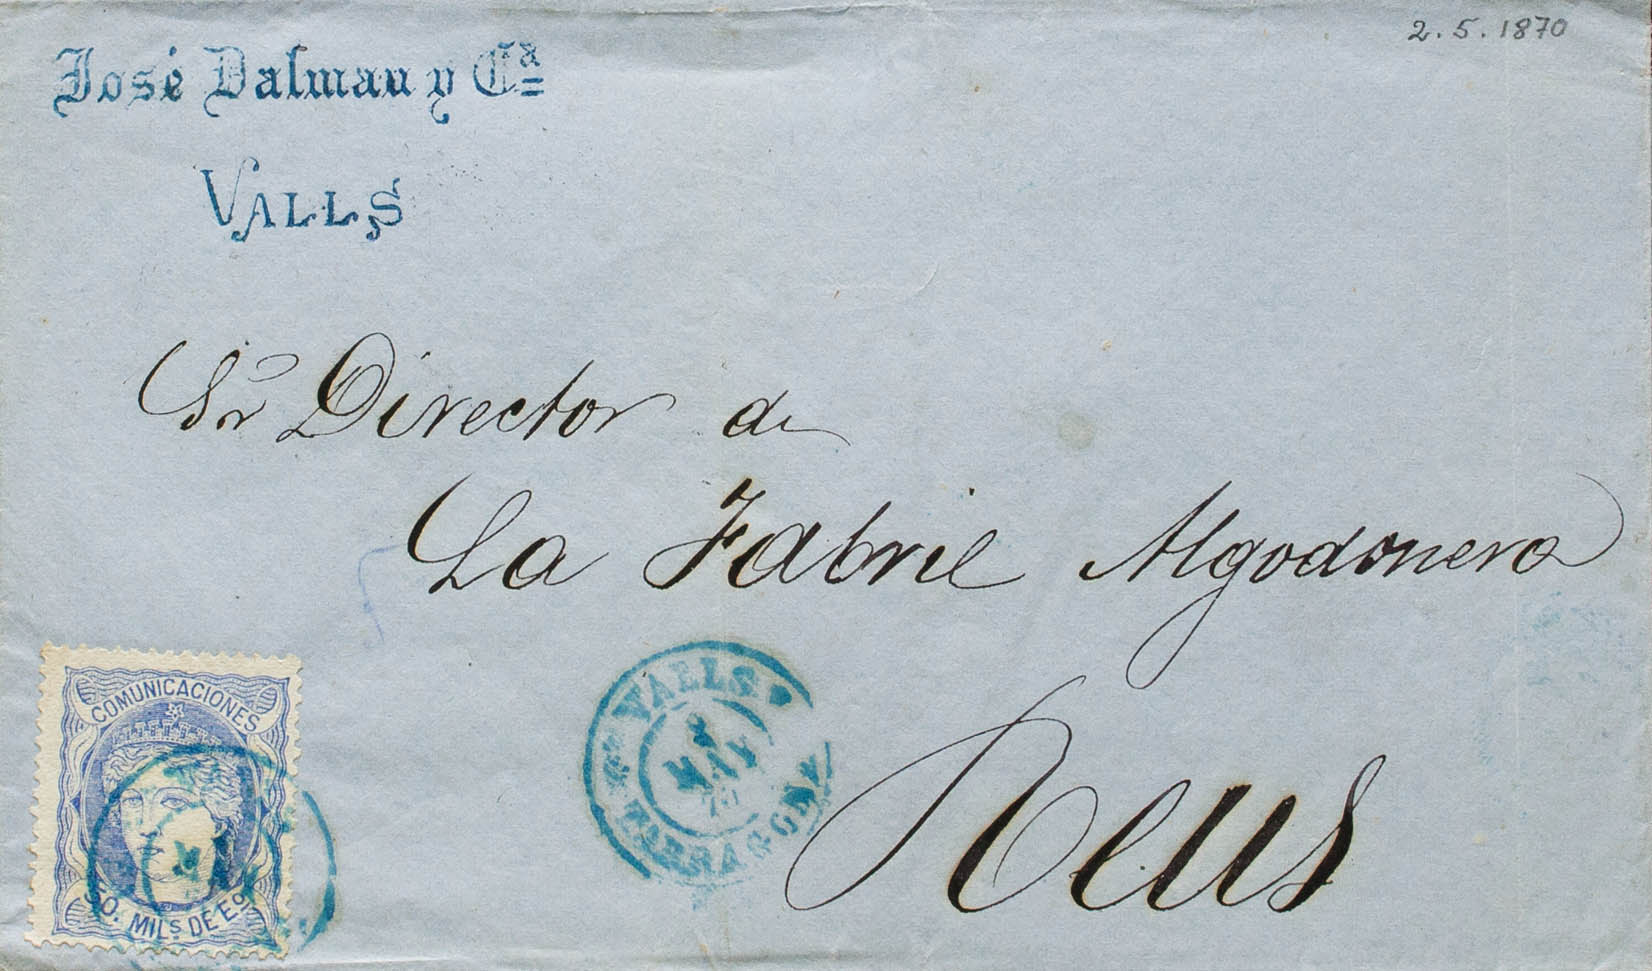 2.5.1870
José Dalmau y Cª
VALLS
Sr Director de
La Fabril Algodonera
Reus
VALLS
2
MAY
70
TARRAGONA
COMUNICACIONES
50. MILs DE Eo